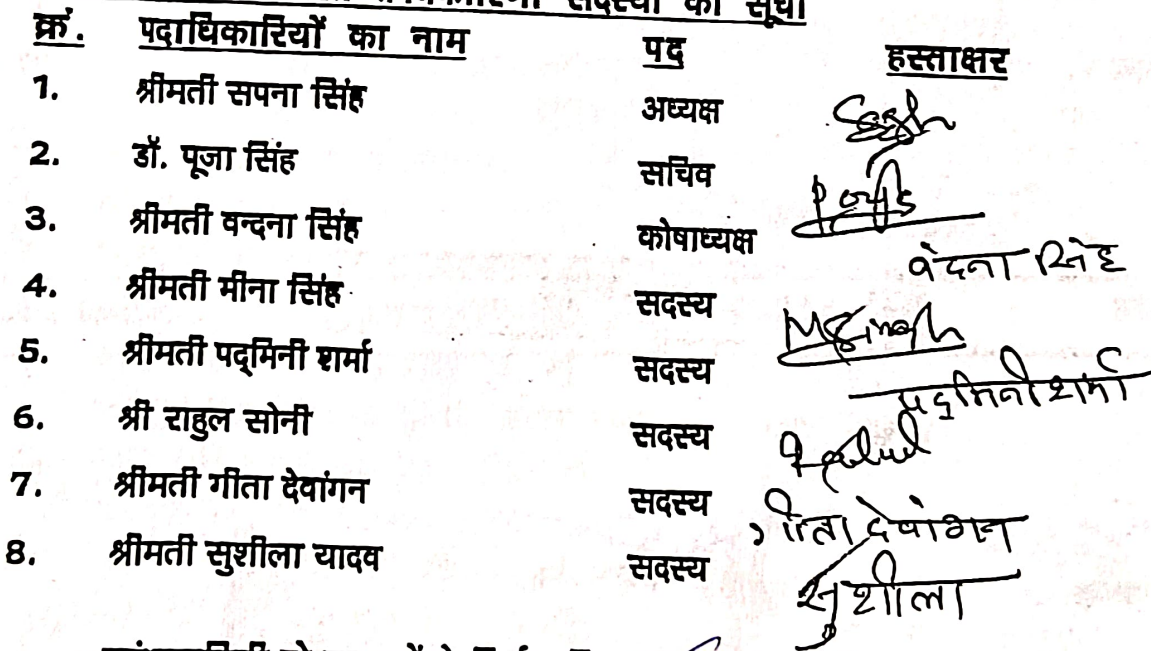 सदस्यों की सूची
क्रं. पदाधिकारियों का नाम पद हस्ताक्षर
1. श्रीमती सपना सिंह अध्यक्ष
2. डॉ. पूजा सिंह सचिव
3. श्रीमती वन्दना सिंह कोषाध्यक्ष वंदना सिंह
4. श्रीमती मीना सिंह सदस्य MSingh
5. श्रीमती पद्‌मिनी शर्मा सदस्य पदुमिनी शर्मा
6. श्री राहुल सोनी सदस्य
7. श्रीमती गीता देवांगन सदस्य गीता देवांगन
8. श्रीमती सुशीला यादव सदस्य सुशीला